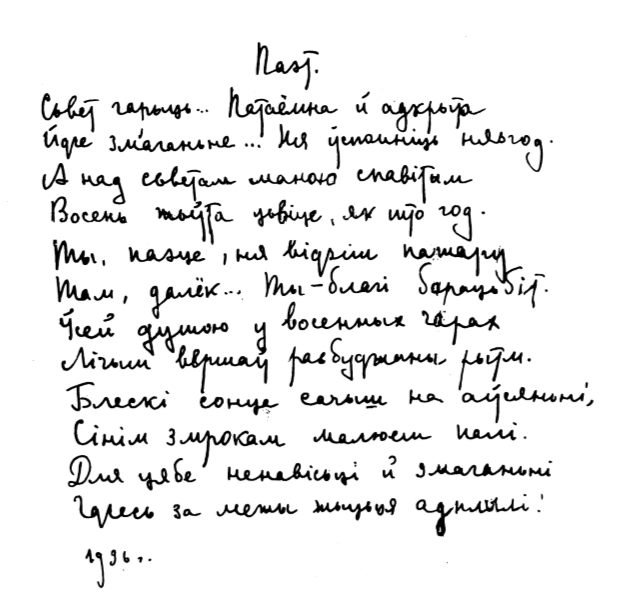 Паэт.
Сьвет гарыць... Патаёмна й адкрыта
Йдзе змаганьне... Ня ўспомніць нявзгод.
А над сьветам маною спавітым
Восень жоўта цьвіце, як што год.
Ты, паэце, ня відзіш пажару
Там, далёк... Ты – благі барацьбіт.
Ўсей душою у восенных чарах
Лічыш вершаў разбуджаны рытм.
Блескі сонца сочыш на аўсяньні,
Сінім змрокам малюеш палі.
Для цябе ненавісьці й змаганьні
Гдзесь за межы жыцьця адплылі!
1936 г.